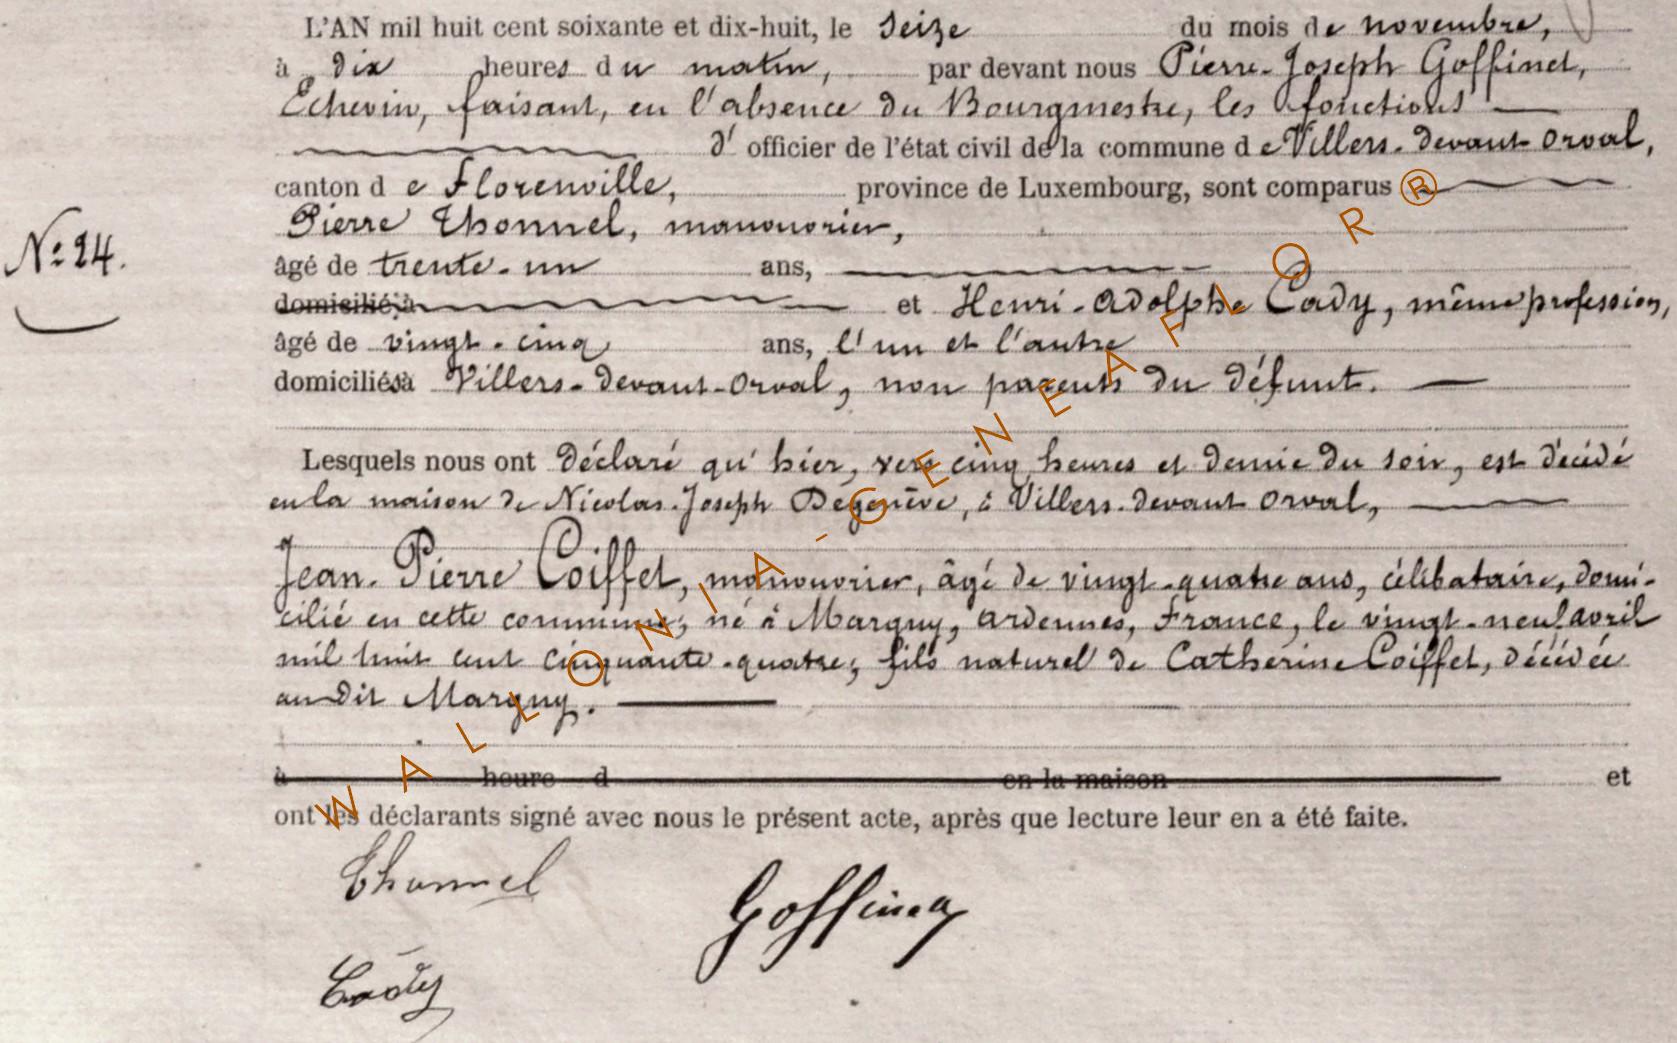 L'AN mil huit cent soixante et dix-huit, le seize du mois de novembre,
à dix heures du matin, par devant nous Pierre-Joseph Goffinet,
Echevin, faisant, en l'absence du Bourgmestre, les fonctions
d' officier de l'état civil de la commune de Villers-devant-Orval,
canton de Florenville, province de Luxembourg, sont comparus
Pierre Thonnel, manouvrier,
N° 24.
âgé de trente-un ans,
domicilié à et Henri-Adolphe Cady, même profession,
âgé de vingt-cinq ans, l'un et l'autre
domiciliés à Villers-devant-Orval, non parents du défunt.
Lesquels nous ont déclaré qu'hier, vers cinq heures et demie du soir, est décédé
en la maison de Nicolas-Joseph Degenève, à Villers-devant-Orval,
Jean-Pierre Coiffet, manouvrier, âgé de vingt-quatre ans, célibataire, domi-
cilié en cette commune, né à Margny, Ardennes, France, le vingt-neuf avril
mil huit cent cinquante-quatre, fils naturel de Catherine Coiffet, décédée
au dit Margny.
à heure d en la maison et
ont les déclarants signé avec nous le présent acte, après que lecture leur en a été faite.
Thonnel
Goffinet
Cady
WALLONIA-GENEAFLOR®